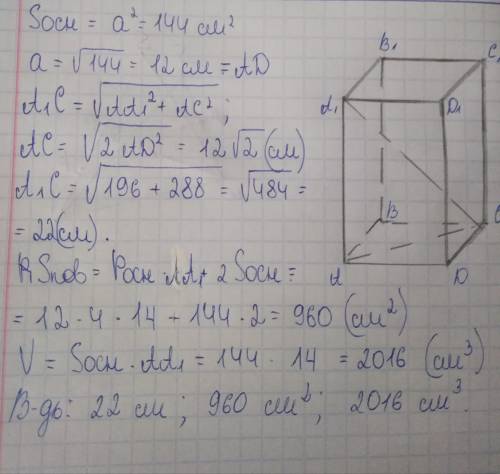 Sосн = a² = 144 см²
a = √144 = 12 см = AD
A₁C = √AA₁² + AC² ;
AC = √2 AD² = 12√2 (см)
A₁C = √196 + 288 = √484 =
= 22(см).
Sпов = Pосн · AA₁ + 2 Sосн =
= 12 · 4 · 14 + 144 · 2 = 960 (см²)
V = Sосн · AA₁ = 144 · 14 = 2016 (см³)
В-дь: 22 см ; 960 см² ; 2016 см³.
B₁
C₁
A₁
D₁
B
C
A
D